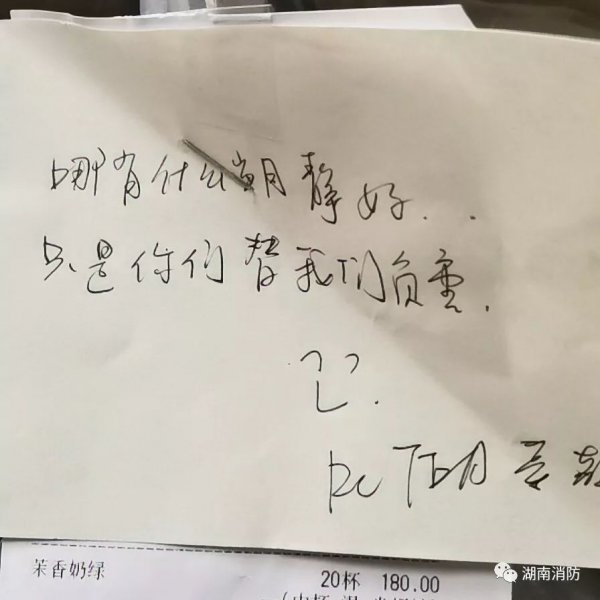 哪有什么岁月静好..
只是你们替我们负重.
茉香奶绿 20杯 180.00
湖南消防